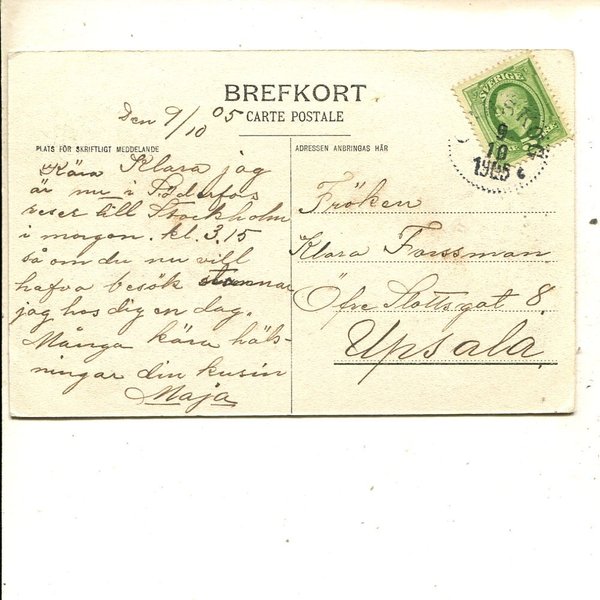 BREFKORT
CARTE POSTALE
Den 9/10 05
PLATS FÖR SKRIFTLIGT MEDDELANDE
Kära Klara jag
är nu i Söderfors
reser till Stockholm
i morgon. kl. 3.15
så om du nu vill
hafva besök stannar
jag hos dig en dag.
Många kära häls-
ningar din kusin
Maja
ADRESSEN ANBRINGAS HÄR
Fröken
Klara Forssman
Öfre Slottsgat 8.
Upsala
SVERIGE
9
10
1905